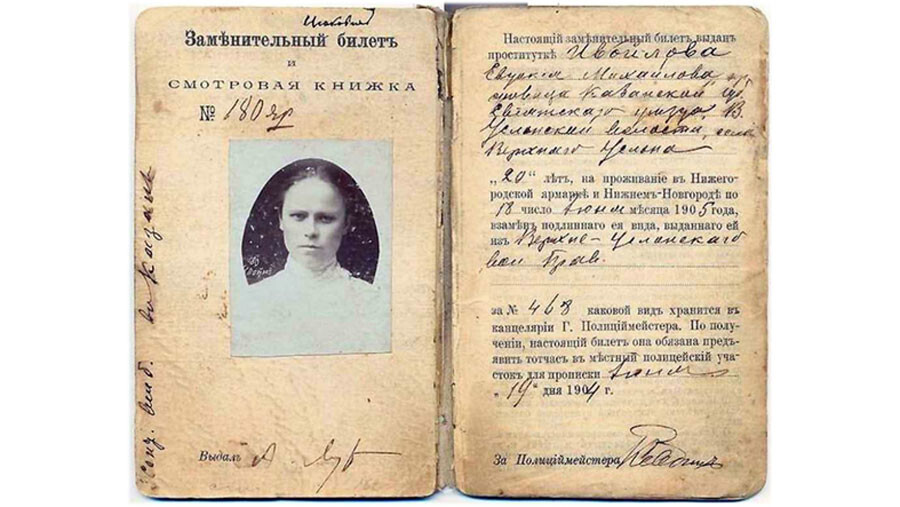 Замѣнительный билетъ
и
СМОТРОВАЯ КНИЖКА
№ 180 яр
Выдалъ
Настоящій замѣнительный билетъ выданъ
проституткѣ Ивойлова
Михайлова
Казанской
уѣзда
Услонской волости, села
Верхняго Услона
„20“ лѣтъ, на проживаніе въ Нижего-
родской ярмаркѣ и Нижнемъ-Новгородѣ по
18 число Іюня мѣсяца 1905 года,
взамѣнъ подлиннаго ея вида, выданнаго ей
изъ Верхне-Услонскаго
вол. Прав.
за № 468 каковой видъ хранится въ
канцеляріи Г. Полиціймейстера. По полу-
ченіи, настоящій билетъ она обязана предъ-
явить тотчасъ въ мѣстный полицейскій уча-
стокъ для прописки Іюня
„19“ дня 1904 г.
За Полиціймейстера